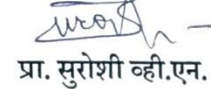 प्रा. सुरोशी व्ही.एन.